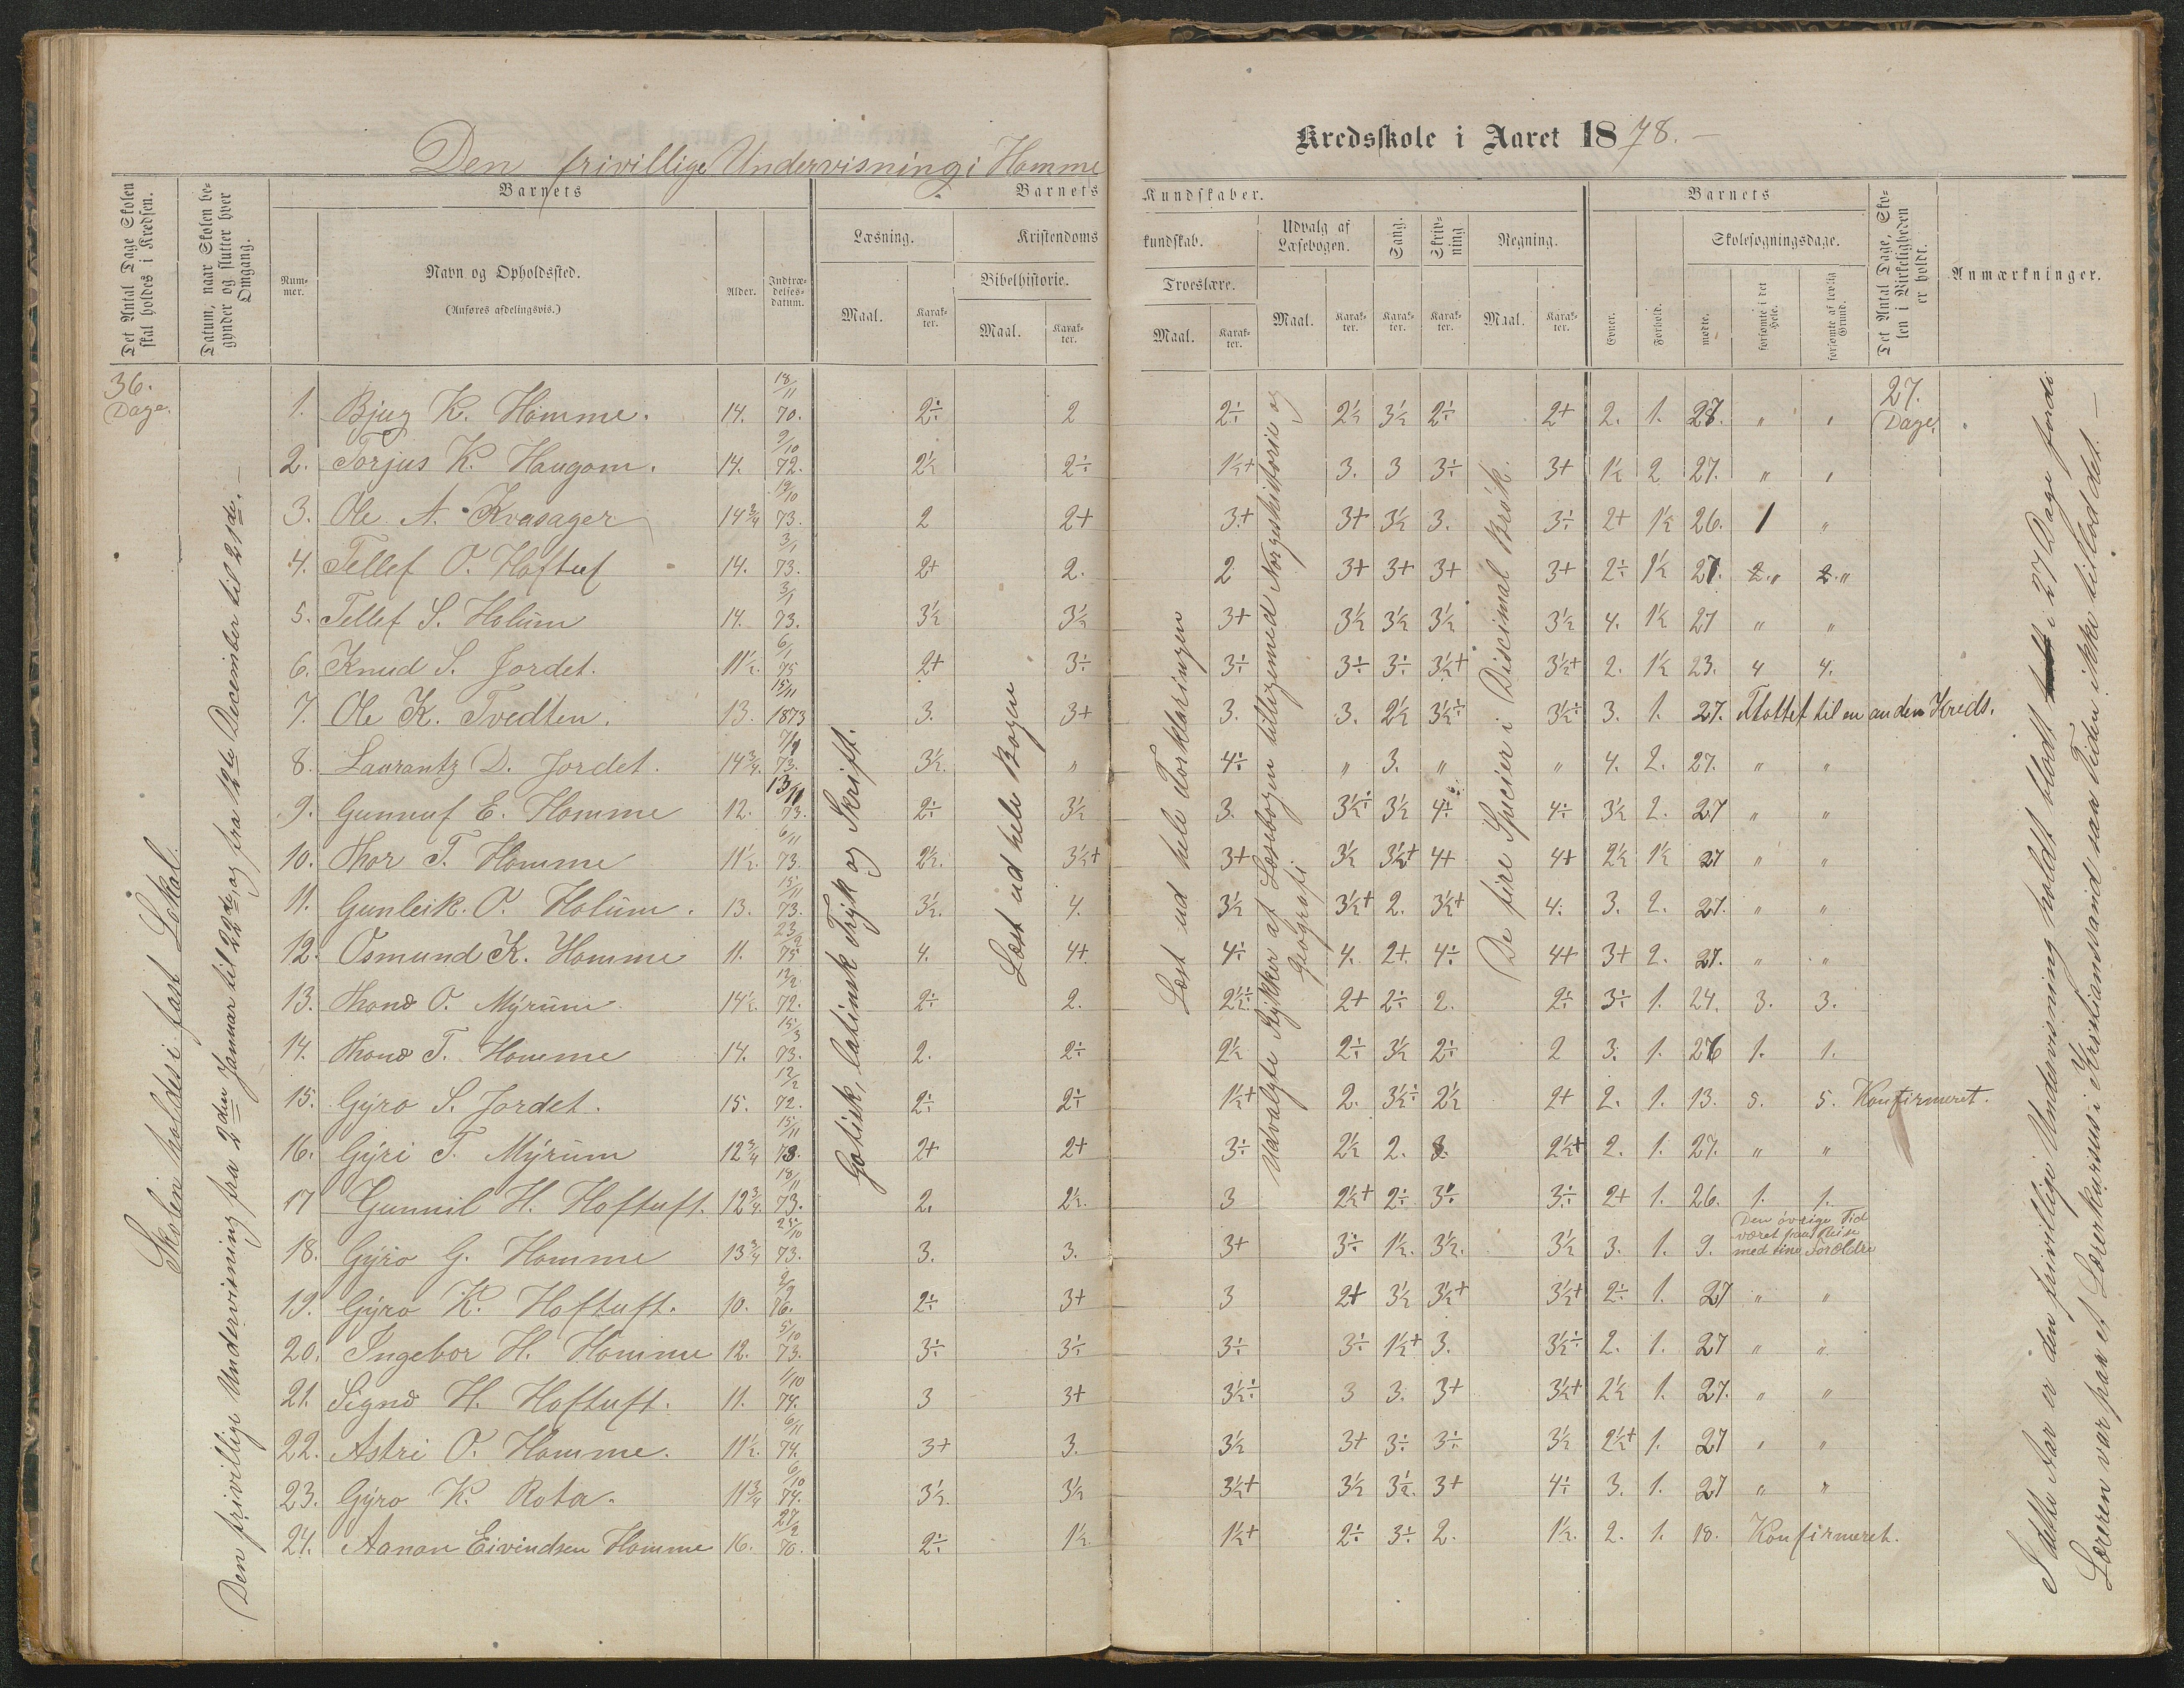 Den frivillige Undervisning i Homme Kredsskole i Aaret 1878.
Det Antal Dage Skolen skal holdes i Kredsen.
Datum, naar Skolen begynder og slutter hver Omgang.
Barnets
Nummer.
Navn og Opholdssted.
(Anføres afdelingsvis.)
Alder.
Indtrædelsesdatum.
Barnets Kundskaber.
Læsning.
Maal.
Karakter.
Kristendomskundskab.
Bibelhistorie.
Maal.
Karakter.
Troeslære.
Maal.
Karakter.
Udvalg af Læsebogen.
Maal.
Karakter.
Sang.
Karakter.
Skrivning.
Karakter.
Regning.
Maal.
Karakter.
Barnets
Evner.
Forhold.
Skolesøgningsdage.
mødte.
forsømte i det Hele.
forsømte af lovlig Grund.
Det Antal Dage, Skolen i Virkeligheden er holdt.
Anmærkninger.
36. Dage.
27. Dage.
Skolen holdes i fast Lokal.
Den frivillige Undervisning fra 2den Januar til 22de, og fra 12te December til 21de.
Gotisk, latinsk Tryk og Skrift.
Læst ud hele Bogen
Læst ud hele Forklaringen
Udvalgte Stykker af Læsebogen tilligemed Norgeshistorie og Geografi.
De fire Specier i Discimal Brøk.
1. Bjug K. Homme. 14. 18/11 70. 2÷ 2 2÷ 2½ 3½ 2÷ 2+ 2. 1. 27. " "
2. Torjus K. Haugom. 14. 9/10 72. 2½ 2÷ 1½+ 3. 3 3÷ 3+ 1½ 2 27. " "
3. Ole A. Kvasager 14¾ 19/10 73. 2 2+ 3+ 3+ 3½ 3. 3÷ 2+ 1½ 26. 1 "
4. Tellef O. Hoftuf 14. 3/1 73. 2+ 2. 2 3+ 3+ 3+ 3+ 2÷ 1½ 27. " "
5. Tellef S. Holum 14. 3/1 73. 3½ 3½ 3+ 3½ 3½ 3½ 3½ 4. 1½ 27 " "
6. Knud S. Jordet. 11½. 6/1 75 2+ 3÷ 3÷ 3÷ 3÷ 3½+ 3½+ 2. 1½ 23. 4 4.
7. Ole K. Tvedten. 13. 15/11 1873 3. 3+ 3. 3. 2½ 3½÷ 3½÷ 3. 1. 27. Flottet til en anden Kreds.
8. Laurantz D. Jordet. 14¾. 73. 3½. " 4÷ " 3. " " 4. 2. 27. " "
9. Gunnuf E. Homme 12. 13/11 73. 2÷ 3½ 3. 3½÷ 3½ 4÷ 4÷ 3½ 2. 27 " "
10. Thor T. Homme 11½. 6/11 73. 2½. 3½+ 3+ 3½ 3½+ 4+ 4+ 2½ 1½ 27 " "
11. Gunleik. O. Holum. 13. 15/11 73. 3½. 4. 3½ 3½+ 2. 3½+ 4. 3. 2. 27. " "
12. Osmund K. Homme 11. 23/2 75 4. 4+ 4÷ 4. 2+ 4÷ 4+ 3+ 2. 27. " "
13. Thone O. Myrum 14½. 12/2 72. 2÷ 2. 2½÷ 2+ 2÷ 2. 2÷ 3÷ 1. 24. 3. 3.
14. Thone T. Homme 14. 15/3 73. 2. 2÷ 2½ 2÷ 3½ 2÷ 2 3. 1. 26 1. 1.
15. Gyro S. Jordet. 15. 12/2 72. 2÷ 2÷ 1½+ 2. 3½÷ 2½ 2+ 2. 1. 13. 5. 5. Konfirmeret.
16. Gyri T. Myrum 12¾ 15/11 73. 2+ 2+ 3÷ 2½ 2. 3. 2½+ 2. 1. 27. " "
17 Gunnil H. Hoftuft. 12¾. 18/11 73. 2. 2½. 3 2½+ 2÷ 3÷ 3÷ 2+ 1. 26. 1. 1.
18. Gyro G. Homme 13¾ 25/10 73. 3. 3. 3+ 3÷ 1½. 3½. 3½ 3. 1. 9. Den øvrige Tid været paa Reise med sine Forældre
19. Gyro K. Hoftuft. 10. 2/2 76. 2÷ 3+ 3 2+ 3½ 3½+ 3½+ 2÷ 1. 27 " "
20. Ingebor H. Homme 12. 5/10 73. 3÷ 3÷ 3÷ 3÷ 1½+ 3. 3½÷ 2. 1. 27 " "
21. Signe H. Hoftuft. 11. 1/10 74. 3 3+ 3½÷ 3 3. 3+ 3½+ 2½ 1. 27. " "
22. Astri O. Homme. 11½. 6/11 74. 3+ 3. 3½ 3+ 3÷ 3÷ 3½ 2½+ 1. 27 " "
23. Gyro K. Rota. 11¾ 6/10 74. 3½. 3½ 3½+ 3½ 3½. 3+ 4÷ 3. 1. 27 " "
24. Aanon Eivindsen Homme 16. 27/2 70. 2÷ 1½ 1½+ 2÷ 3÷ 2. 1½. 2. 1. 18. Konfirmeret.
I dette Aar er den frivillige Undervisning holdt blodt i 27 Dage fordi
Læreren var paa et Lærerkursus i Kristiandsand saa Tiden ikke tillod det.